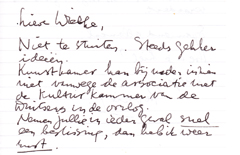 Lieve Wiebe,
Niet te stuiten. Steeds gekker
ideeën.
Kunstkamer kan bij nader inzien
niet vanwege de associatie met
de Kultuurkamer van de
Duitsers in de oorlog.
Nemen jullie in ieder geval snel
een beslissing, dan heb ik weer
rust.